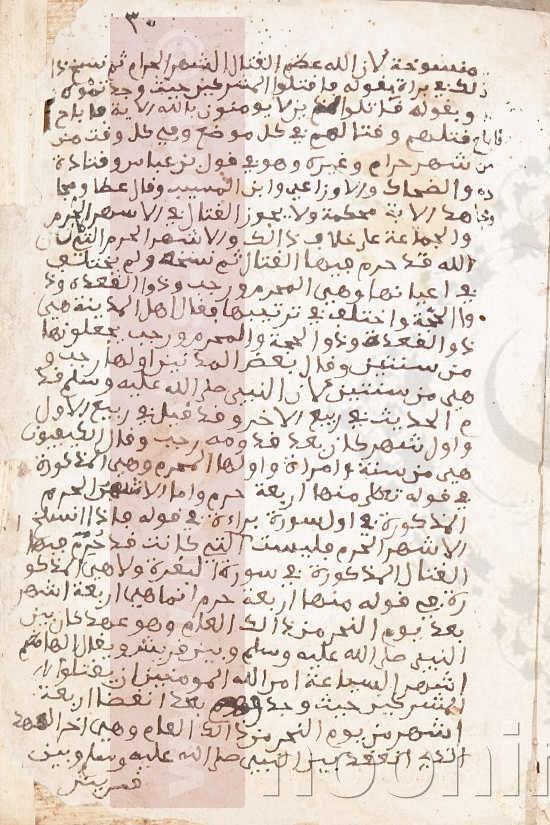 ٣٠
منسوخة لان الله عظم القتال الشهر الحرام ثم نسخ ذا
لك في براة بقوله فاقتلوا المشركين حيث وجدتموهم
وبقوله قاتلوا الذين لا يومنون بالله الاية فاباح
قتلهم وقتالهم في كل موضع وفي كل وقت من
شهر حرام وغيره وهو في قول بن عباس وقتادة
والضحاك والاوزاعي وابن المسيب وقال عطا ومجا
هد الاية محكمة ولا يجوز القتال في الاشهر الحرم
والجماعة على خلاف ذالك والاشهر الحرم التي كان
الله قد حرم فيها القتال ثم نسخه ولم يختلف
في اعيانها وهي المحرم ورجب وذوا القعدة وذ
وا الحجة واختلف في ترتيبها فقال اهل المدينة هي
ذو القعدة وذو الحجة والمحرم ورجب يجعلونها
من سنتين وقال بعض المدنيين اولها رجب و
هي من سنتين لان النبي صلى الله عليه وسلم قد
م المدينة في ربيع الاخر وقد قيل في ربيع الاول
واول شهر كان بعد قدومه رجب وقال الكوفيون
هي من سنة وامراة واولها المحرم وهي المذكورة
في قوله تعلى منها اربعة حرم واما الاشهر الحرم
المذكورة في اول سورة براءة في قوله فاذا انسلخ
الاشهر الحرم فليست التي كانت قد حرم فيها
القتال المذكورة في سورة البقرة ولا هي المذكو
رة في قوله منها اربعة حرم انما هي اربعة اشهر
بعد يوم النحر من ذالك العام وهو عهد كان بين
النبي صلى الله عليه وسلم وبين قريش ويقال لها
اشهر السياحة امر الله المومنين ان يقتلوا ا
لمشركين حيث وجد بعد انقضا اربعة
اشهر من يوم النحر من ذالك العام وهي اخر العهد
الذي انعقد بين النبي صلى الله عليه وسلم وبين
قريش
noorin